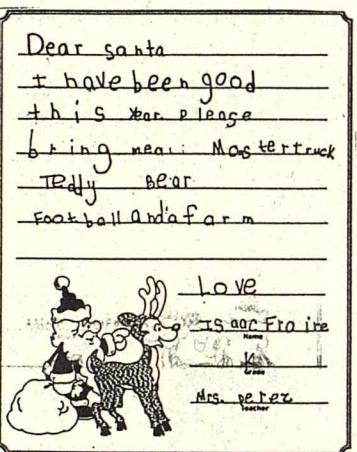 Dear santa
I have been good
this year please
bring mea: Mostertruck
Teddy Bear
Football and a farm
Love
Isaac Fraire
Name
K
Grade
Mrs. perez
Teacher